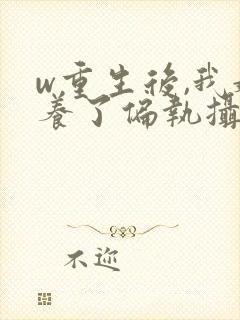 w重生後,我
養了偏執攝
不迩